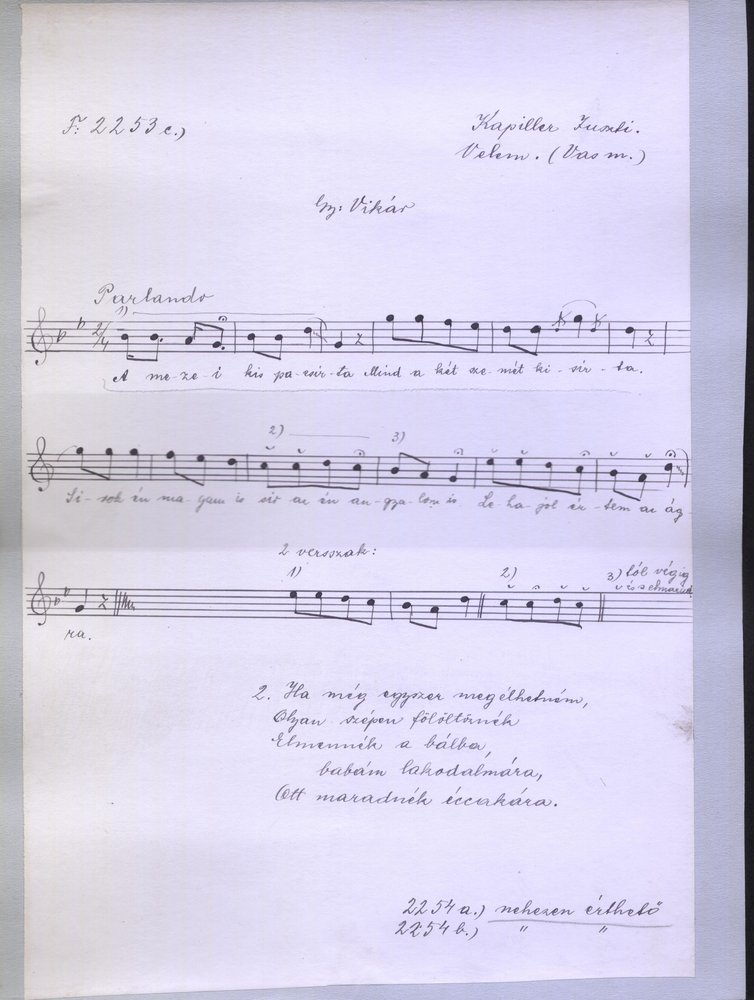 F. 2253 c.)
Kapiller Zuszti.
Velem. (Vas m.)
Gy: Vikár
Parlando
1)
2/4
A me-ze-i kis pa-csir-ta Mind a két sze-mét ki-sir-ta.
2) 3)
Si-rok én ma-gam is sir az én an-gya-lom is Le-ha-jol ér-tem az ág-
2 versszak:
1) 2) 3) tól végig
és elmarad
ra.
2. Ha még egyszer megélhetném,
Olyan szépen fölöltöznék
Elmennék a bálba,
babám lakodalmára,
Ott maradnék éccakára.
2254 a.) nehezen érthető
2254 b.) " "